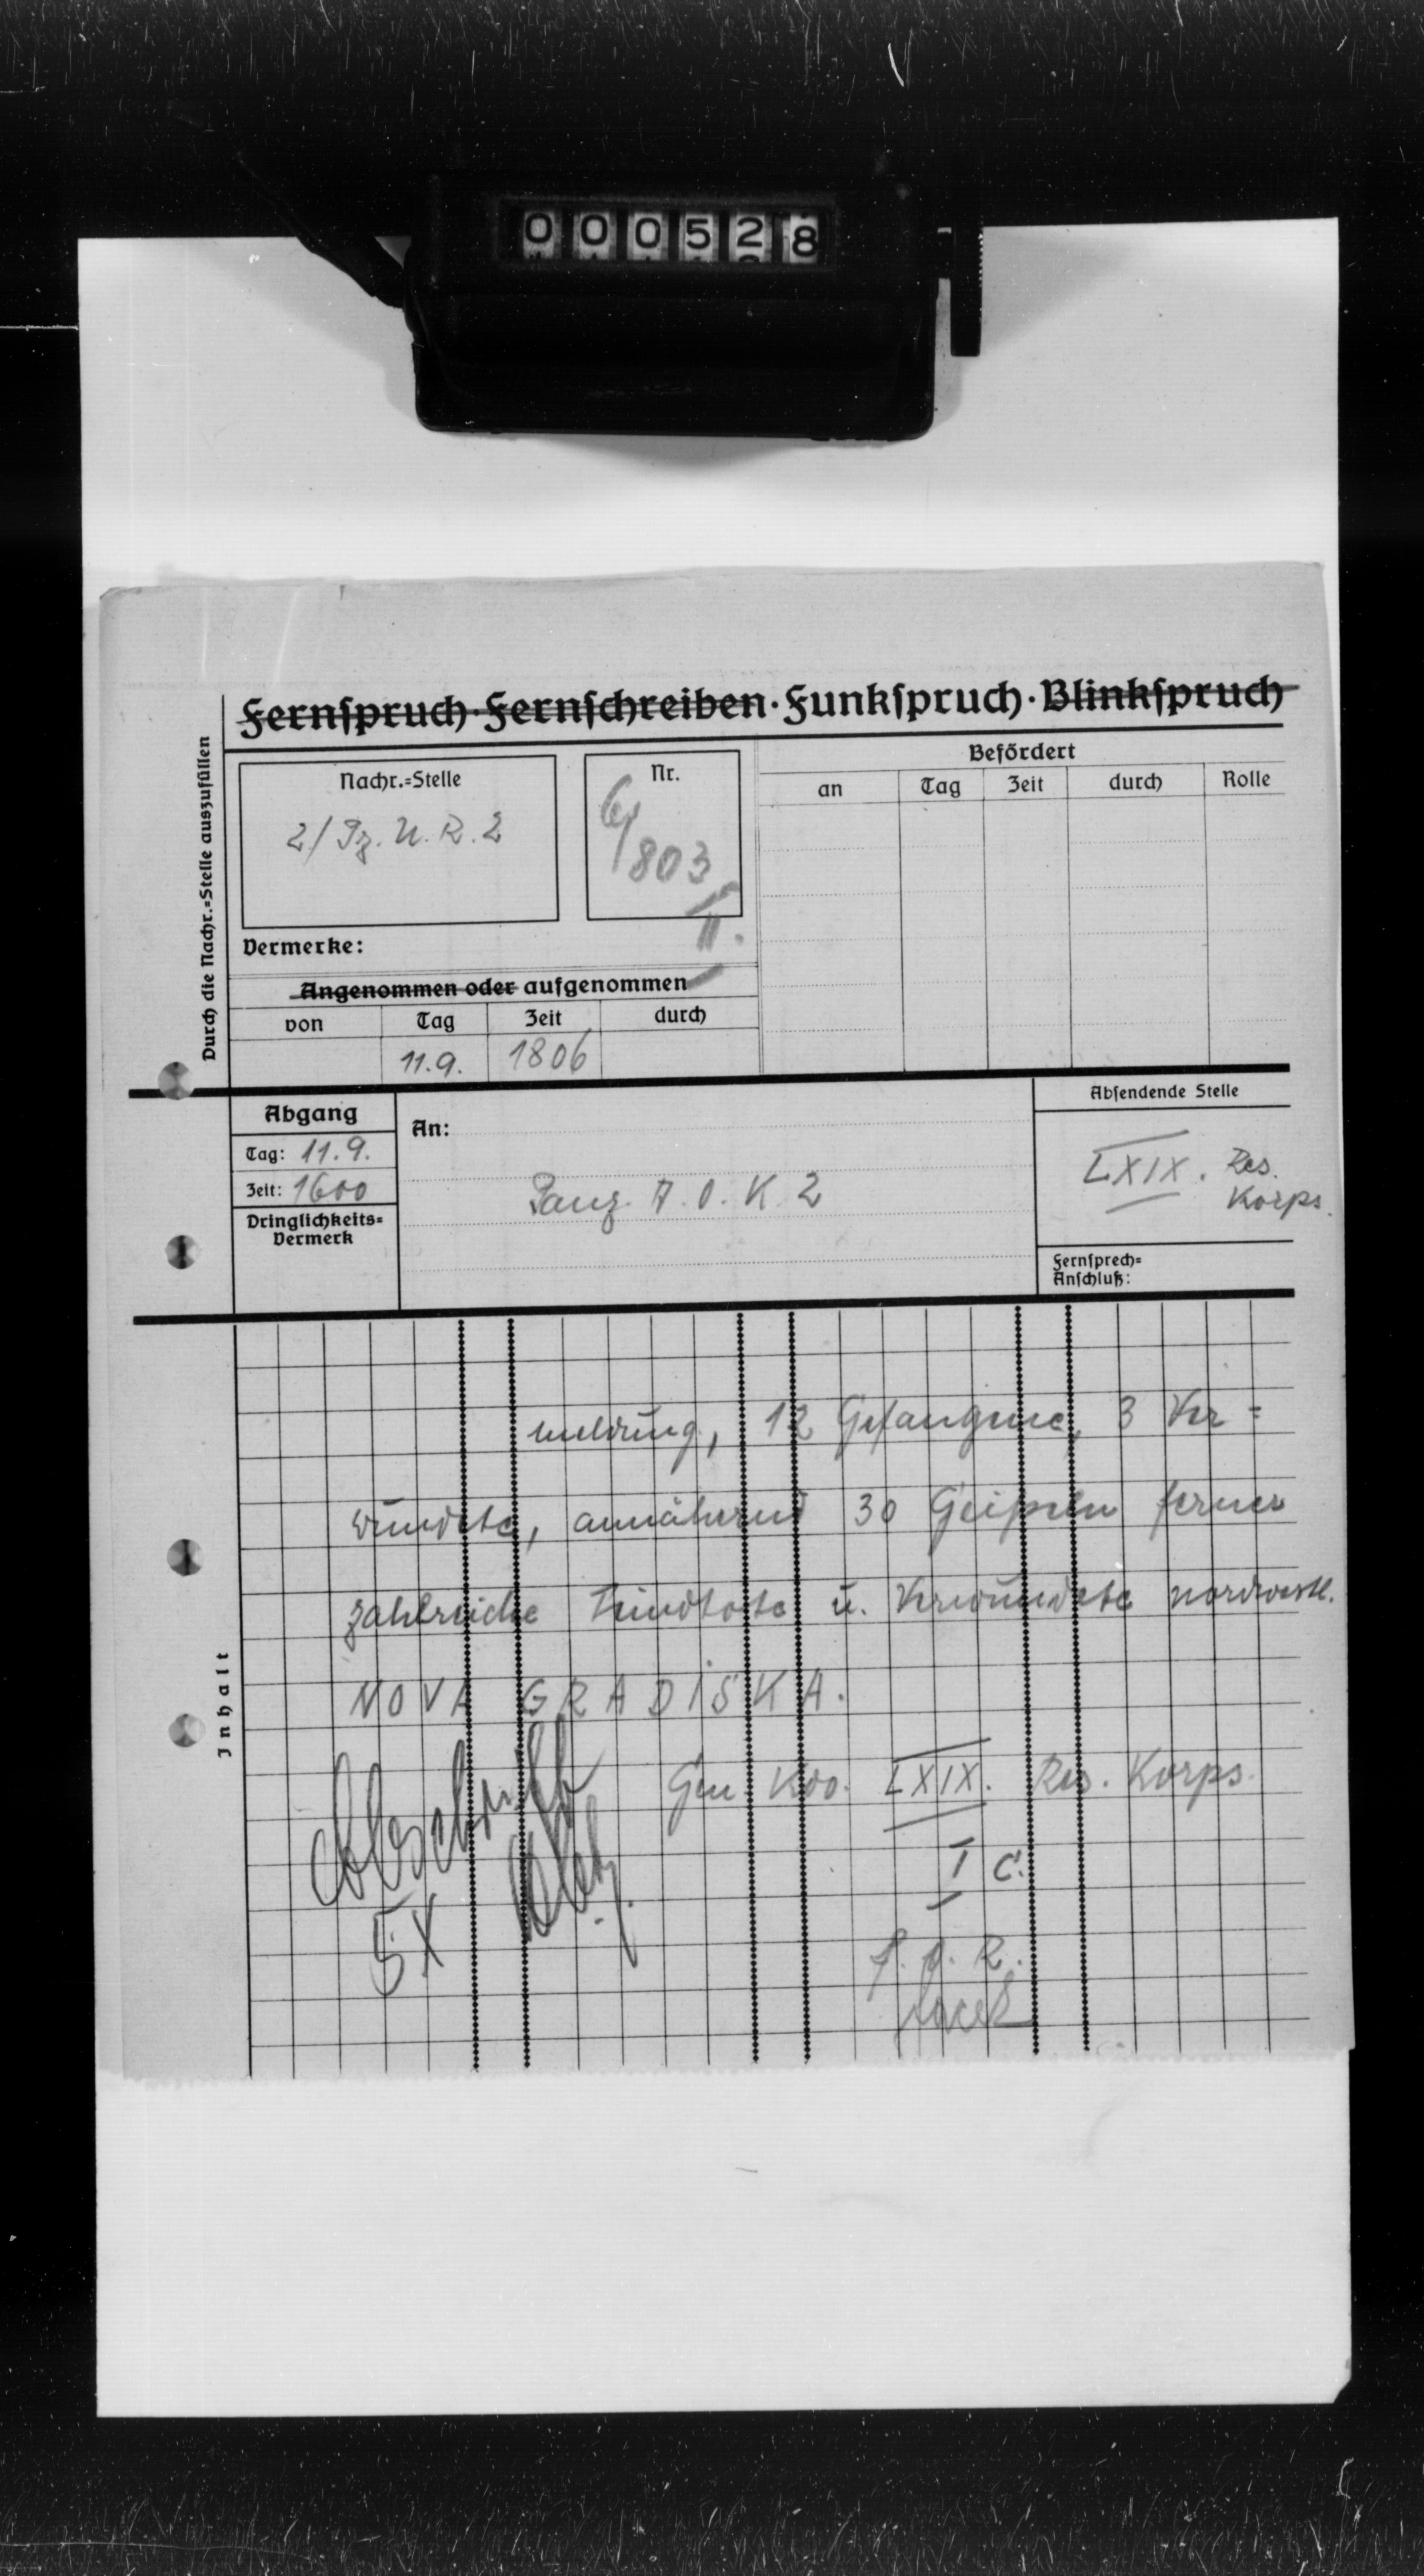 000528
Fernspruch · Fernschreiben · Funkspruch · Blinkspruch
Durch die Nachr.=Stelle auszufüllen
Nachr.=Stelle
2/Pz. N. R. 2
Nr.
803
II.
Befördert
an Tag Zeit durch Rolle
Vermerke:
Angenommen oder aufgenommen
von Tag Zeit durch
11.9. 1806
Abgang
Tag: 11.9.
Zeit: 1600
Dringlichkeits=
Vermerk
An:
Panz. A. O. K. 2
Absendende Stelle
LXIX. Res.
Korps.
Fernsprech=
Anschluß:
Inhalt
meldung, 12 Gefangene, 3 Ver=
wundete, annähernd 30 Geiseln ferner
zahlreiche Feindtote u. Verwundete nordwestl.
NOVA GRADISKA.
Gen. Kdo. LXIX. Res. Korps.
I c.
Abschrift
5x
f. d. R.